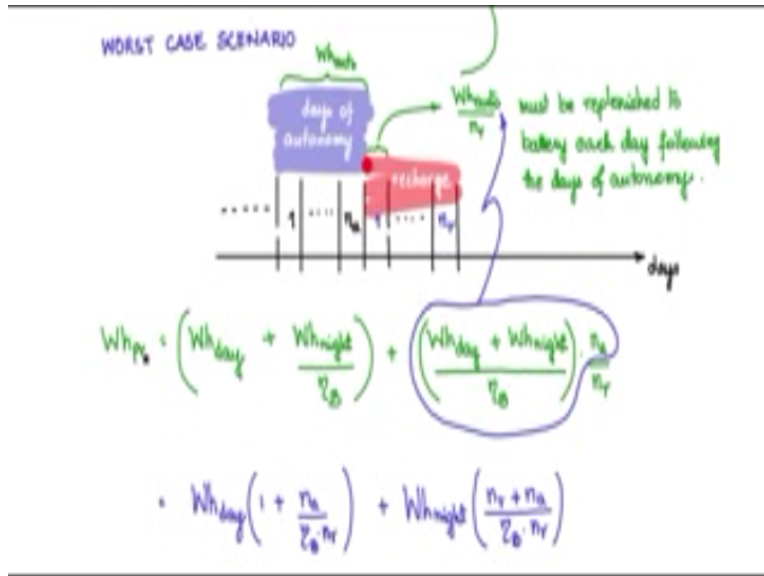 WORST CASE SCENARIO
Wh_auto
days of autonomy
Wh_auto / n_r
must be replenished to
battery each day following
the days of autonomy.
recharge
..... 1 .... n_a 1 .... n_r
days
Wh_pv = (Wh_day + Wh_night / η_B) + ((Wh_day + Wh_night) / η_B) · n_a / n_r
= Wh_day (1 + n_a / η_B · n_r) + Wh_night (n_r + n_a / η_B · n_r)